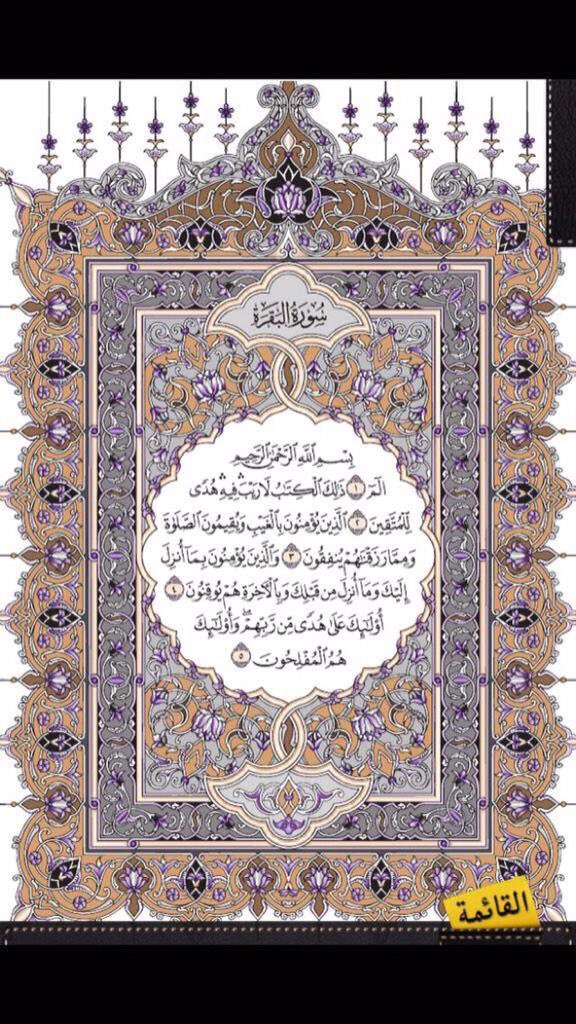 سُورَةُ البَقَرَةِ
بِسْمِ ٱللَّهِ ٱلرَّحْمَٰنِ ٱلرَّحِيمِ
الٓمٓ ١ ذَٰلِكَ ٱلْكِتَٰبُ لَا رَيْبَ ۛ فِيهِ ۛ هُدًى
لِّلْمُتَّقِينَ ٢ ٱلَّذِينَ يُؤْمِنُونَ بِٱلْغَيْبِ وَيُقِيمُونَ ٱلصَّلَوٰةَ
وَمِمَّا رَزَقْنَٰهُمْ يُنفِقُونَ ٣ وَٱلَّذِينَ يُؤْمِنُونَ بِمَآ أُنزِلَ
إِلَيْكَ وَمَآ أُنزِلَ مِن قَبْلِكَ وَبِٱلْءَاخِرَةِ هُمْ يُوقِنُونَ ٤
أُو۟لَٰٓئِكَ عَلَىٰ هُدًى مِّن رَّبِّهِمْ ۖ وَأُو۟لَٰٓئِكَ
هُمُ ٱلْمُفْلِحُونَ ٥
القائمة